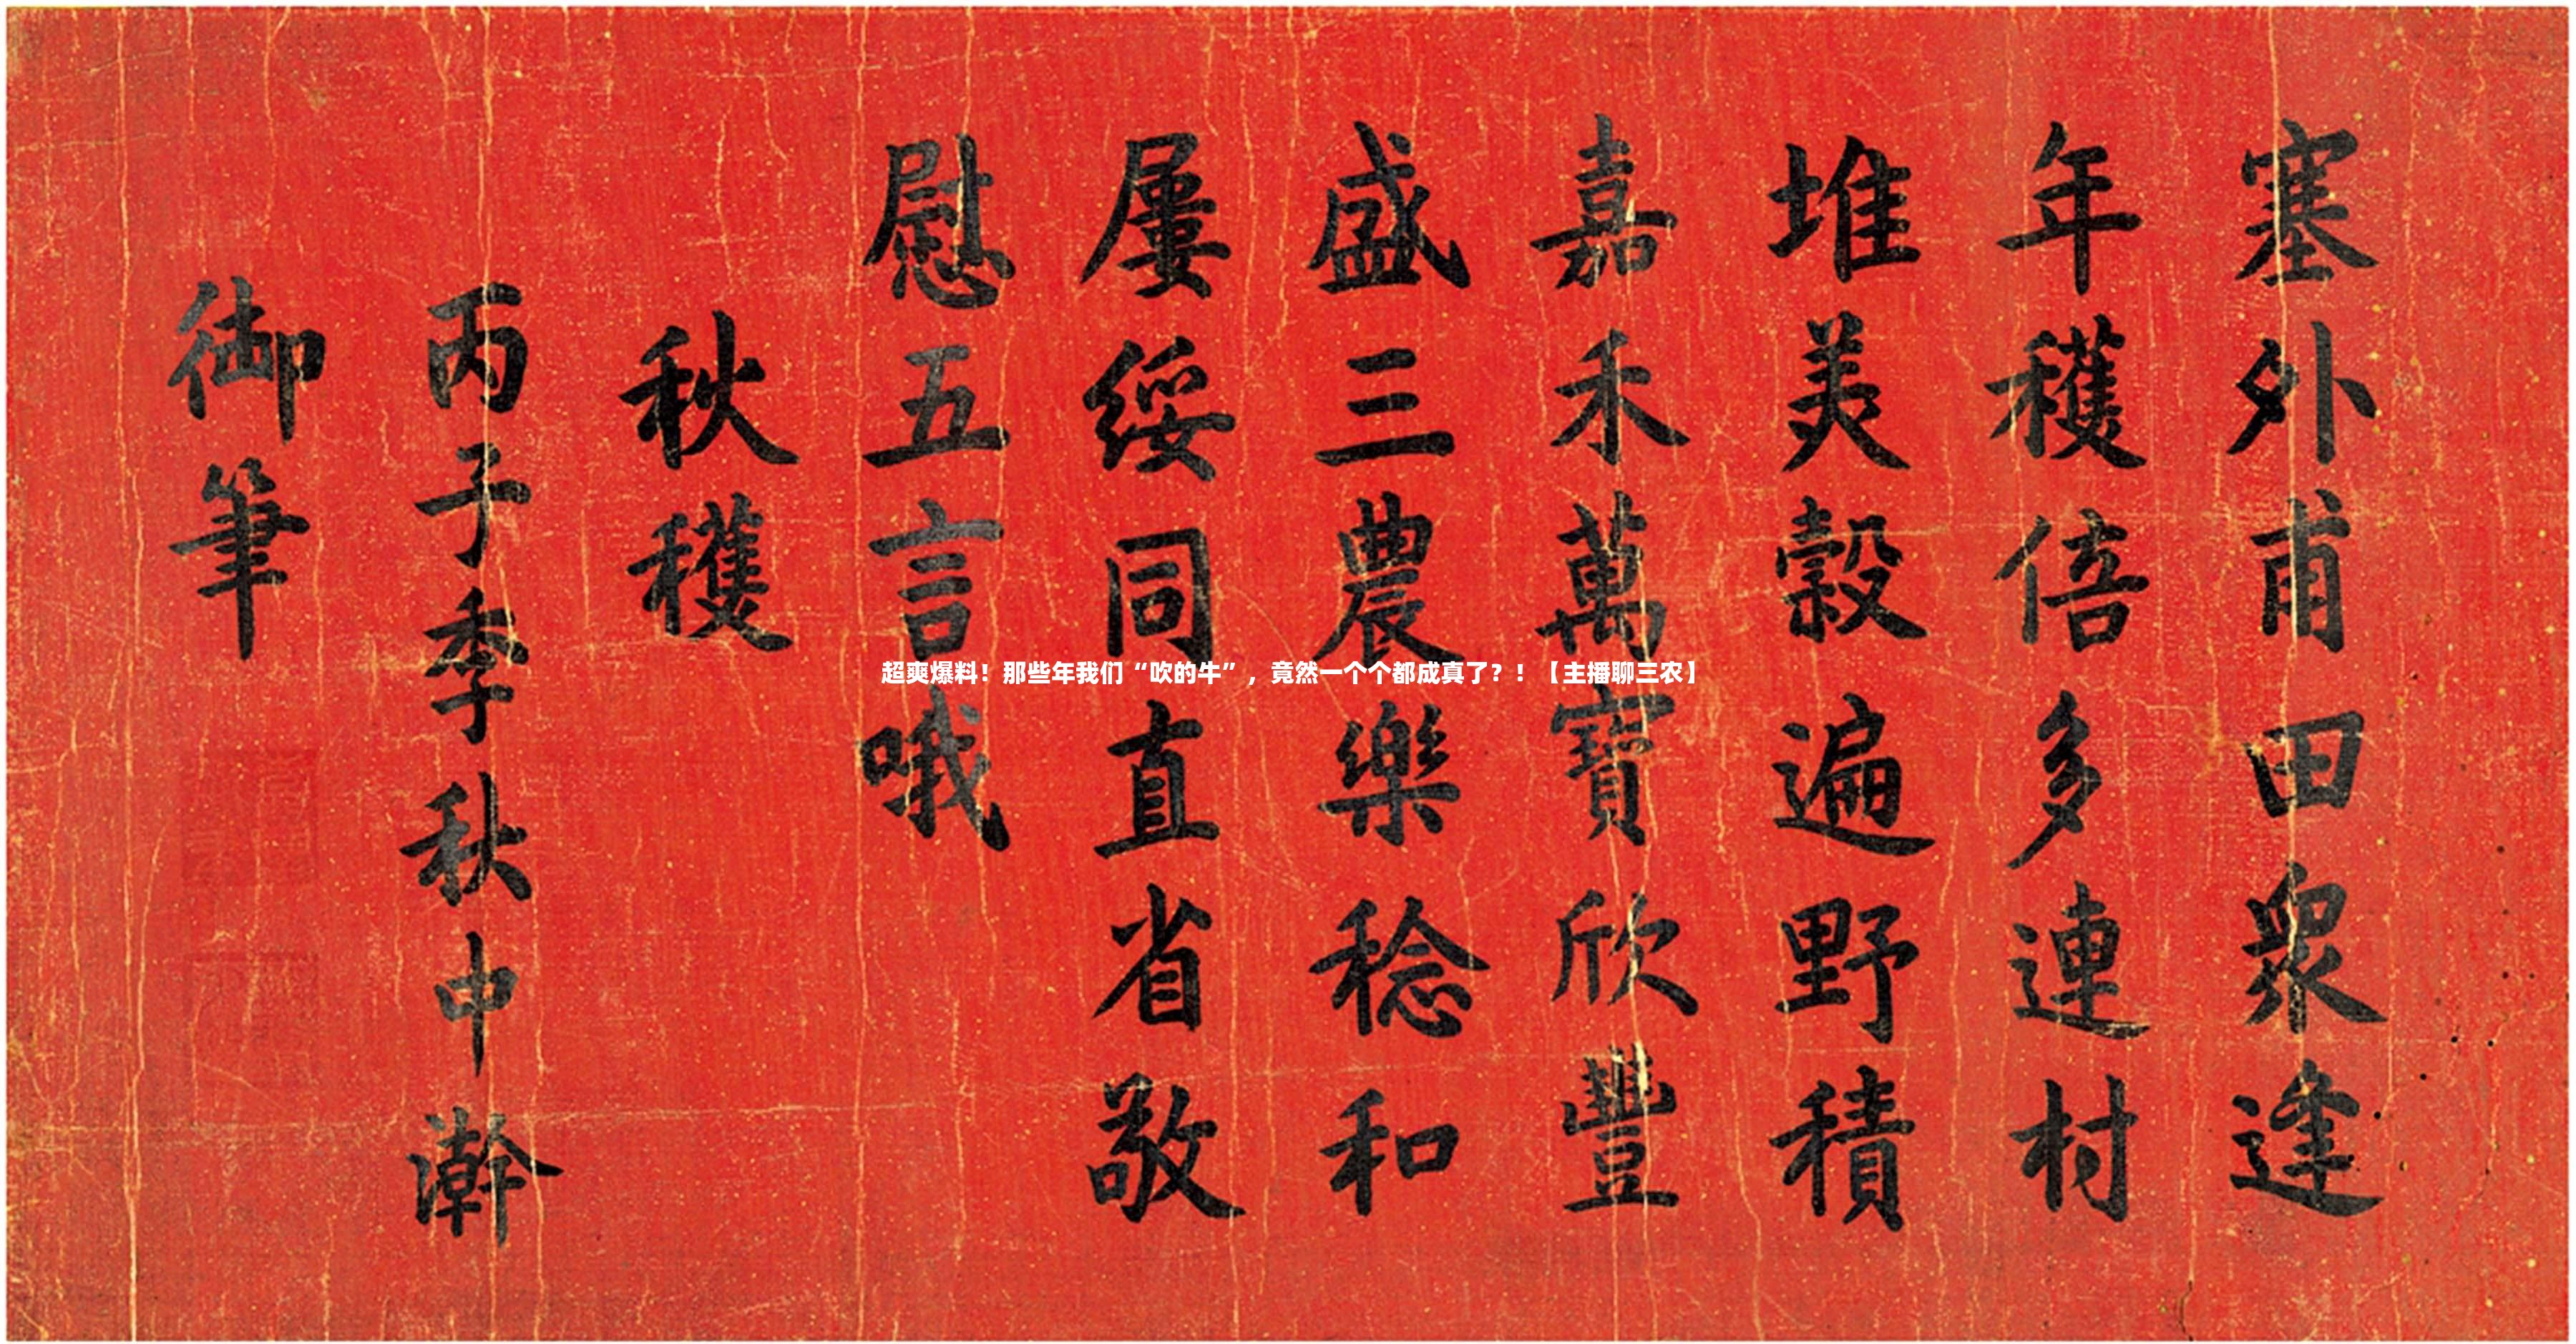 塞外甫田衆逢
年穫倍多連村
堆羙穀遍野積
嘉禾萬寶欣豐
盛三農樂稔和
屢綏同直省敬
慰五言哦
秋穫
丙子季秋中澣
御筆
超爽爆料！那些年我们“吹的牛”，竟然一个个都成真了？！【主播聊三农】